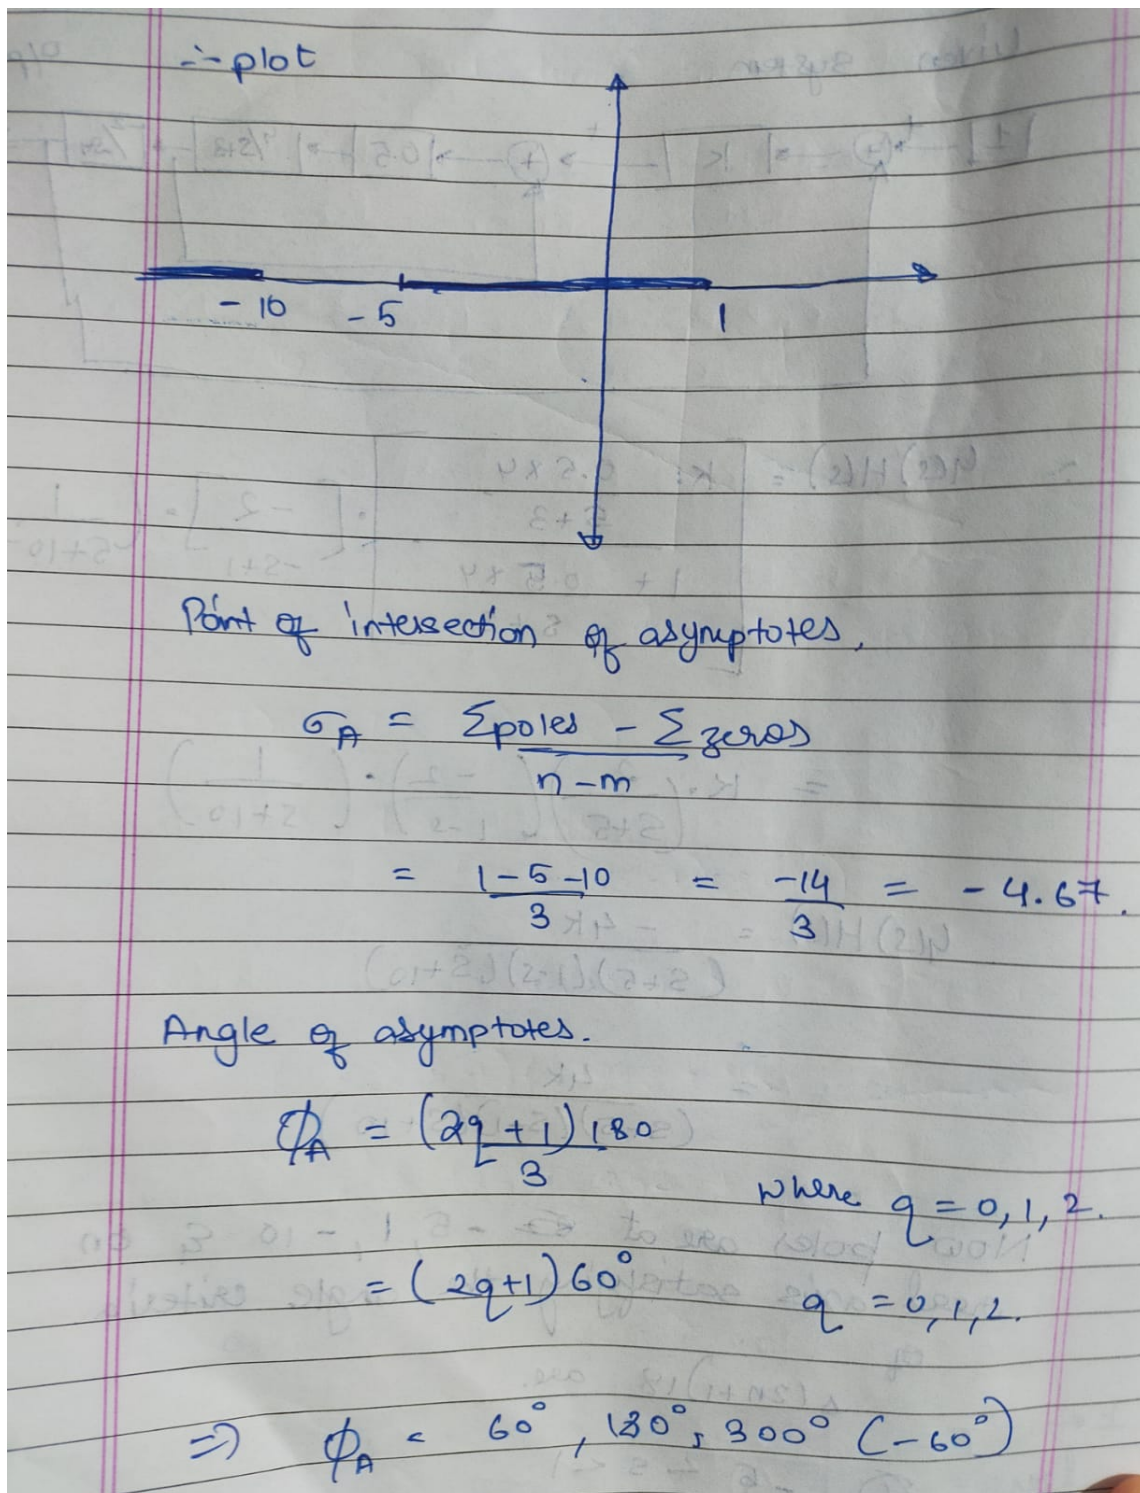 ∴ plot
-10 -5 1
Point of intersection of asymptotes,
σA = Σpoles - Σzeros
n-m
= 1-5-10 = -14 = -4.67.
3 3
Angle of asymptotes.
ϕA = (2q+1)180
3
where q = 0,1,2.
= (2q+1)60° q = 0,1,2.
⇒ ϕA = 60°, 180°, 300° (-60°)